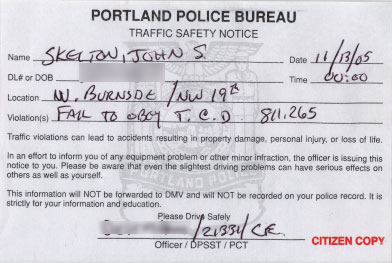 PORTLAND POLICE BUREAU
TRAFFIC SAFETY NOTICE
Name SKELTON, JOHN S. Date 11/13/05
DL# or DOB Time 00:00
Location W. BURNSDE / NW 19th
Violation(s) FAIL TO OBOY T.C.D 811.265
Traffic violations can lead to accidents resulting in property damage, personal injury, or loss of life.
In an effort to inform you of any equipment problem or other minor infraction, the officer is issuing this
notice to you. Please be aware that even the slightest driving problems can have serious effects on
others as well as yourself.
This information will NOT be forwarded to DMV and will NOT be recorded on your police record. It is
strictly for your information and education.
Please Drive Safely
/21334/CE
Officer / DPSST / PCT
CITIZEN COPY